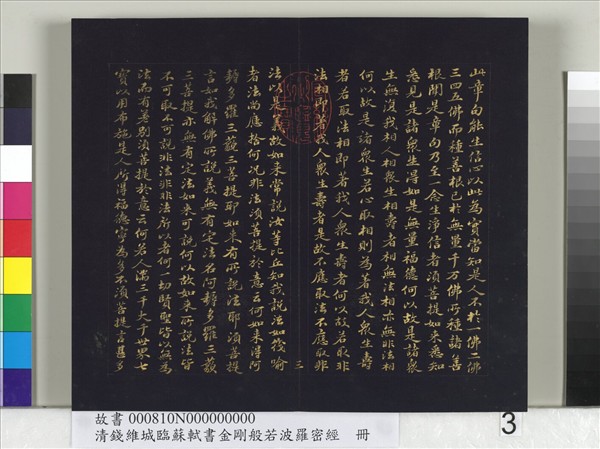 此章句能生信心以此為實當知是人不於一佛二佛
三四五佛而種善根已於無量千万佛所種諸善
根聞是章句乃至一念生淨信者須菩提如來悉知
悉見是諸眾生得如是無量福德何以故是諸眾
生無復我相人相眾生相壽者相無法相亦無非法相
何以故是諸眾生若心取相則為著我人眾生壽
者若取法相即著我人眾生壽者何以故若取非
法相即著我人眾生壽者是故不應取法不應取非
三
法以是義故如來常說汝等比丘知我說法如筏喻
者法尚應捨何況非法須菩提於意云何如來得阿
耨多羅三藐三菩提耶如來有所說法耶須菩提
言如我解佛所說義無有定法名阿耨多羅三藐
三菩提亦無有定法如來可說何以故如來所說法皆
不可取不可說非法非非法所以者何一切賢聖皆以無為
法而有差別須菩提於意云何若人滿三千大千世界七
寶以用布施是人所得福德寧為多不須菩提言甚多
故書 000810N000000000
清錢維城臨蘇軾書金剛般若波羅密經 冊
3